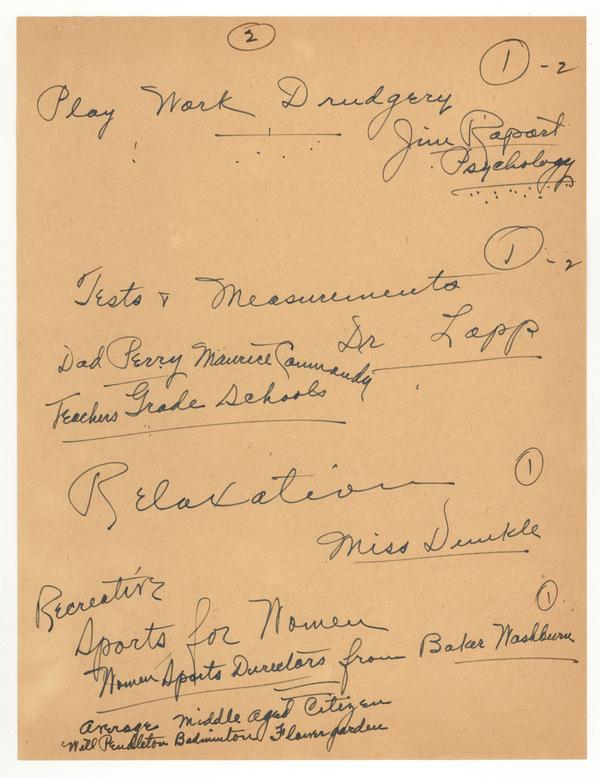 2
① - 2
Play Work Drudgery
Jim Rapart
Psychology
① - 2
Tests & Measurements
Dr Lapp
Dad Perry Maurice
Teachers Grade Schools
①
Relaxation
Miss Dunkle
Recreative
①
Sports for Women
Women Sports Directors from Baker Washburn
Average Middle Aged Citizen
Will Pendleton Badminton Flower garden